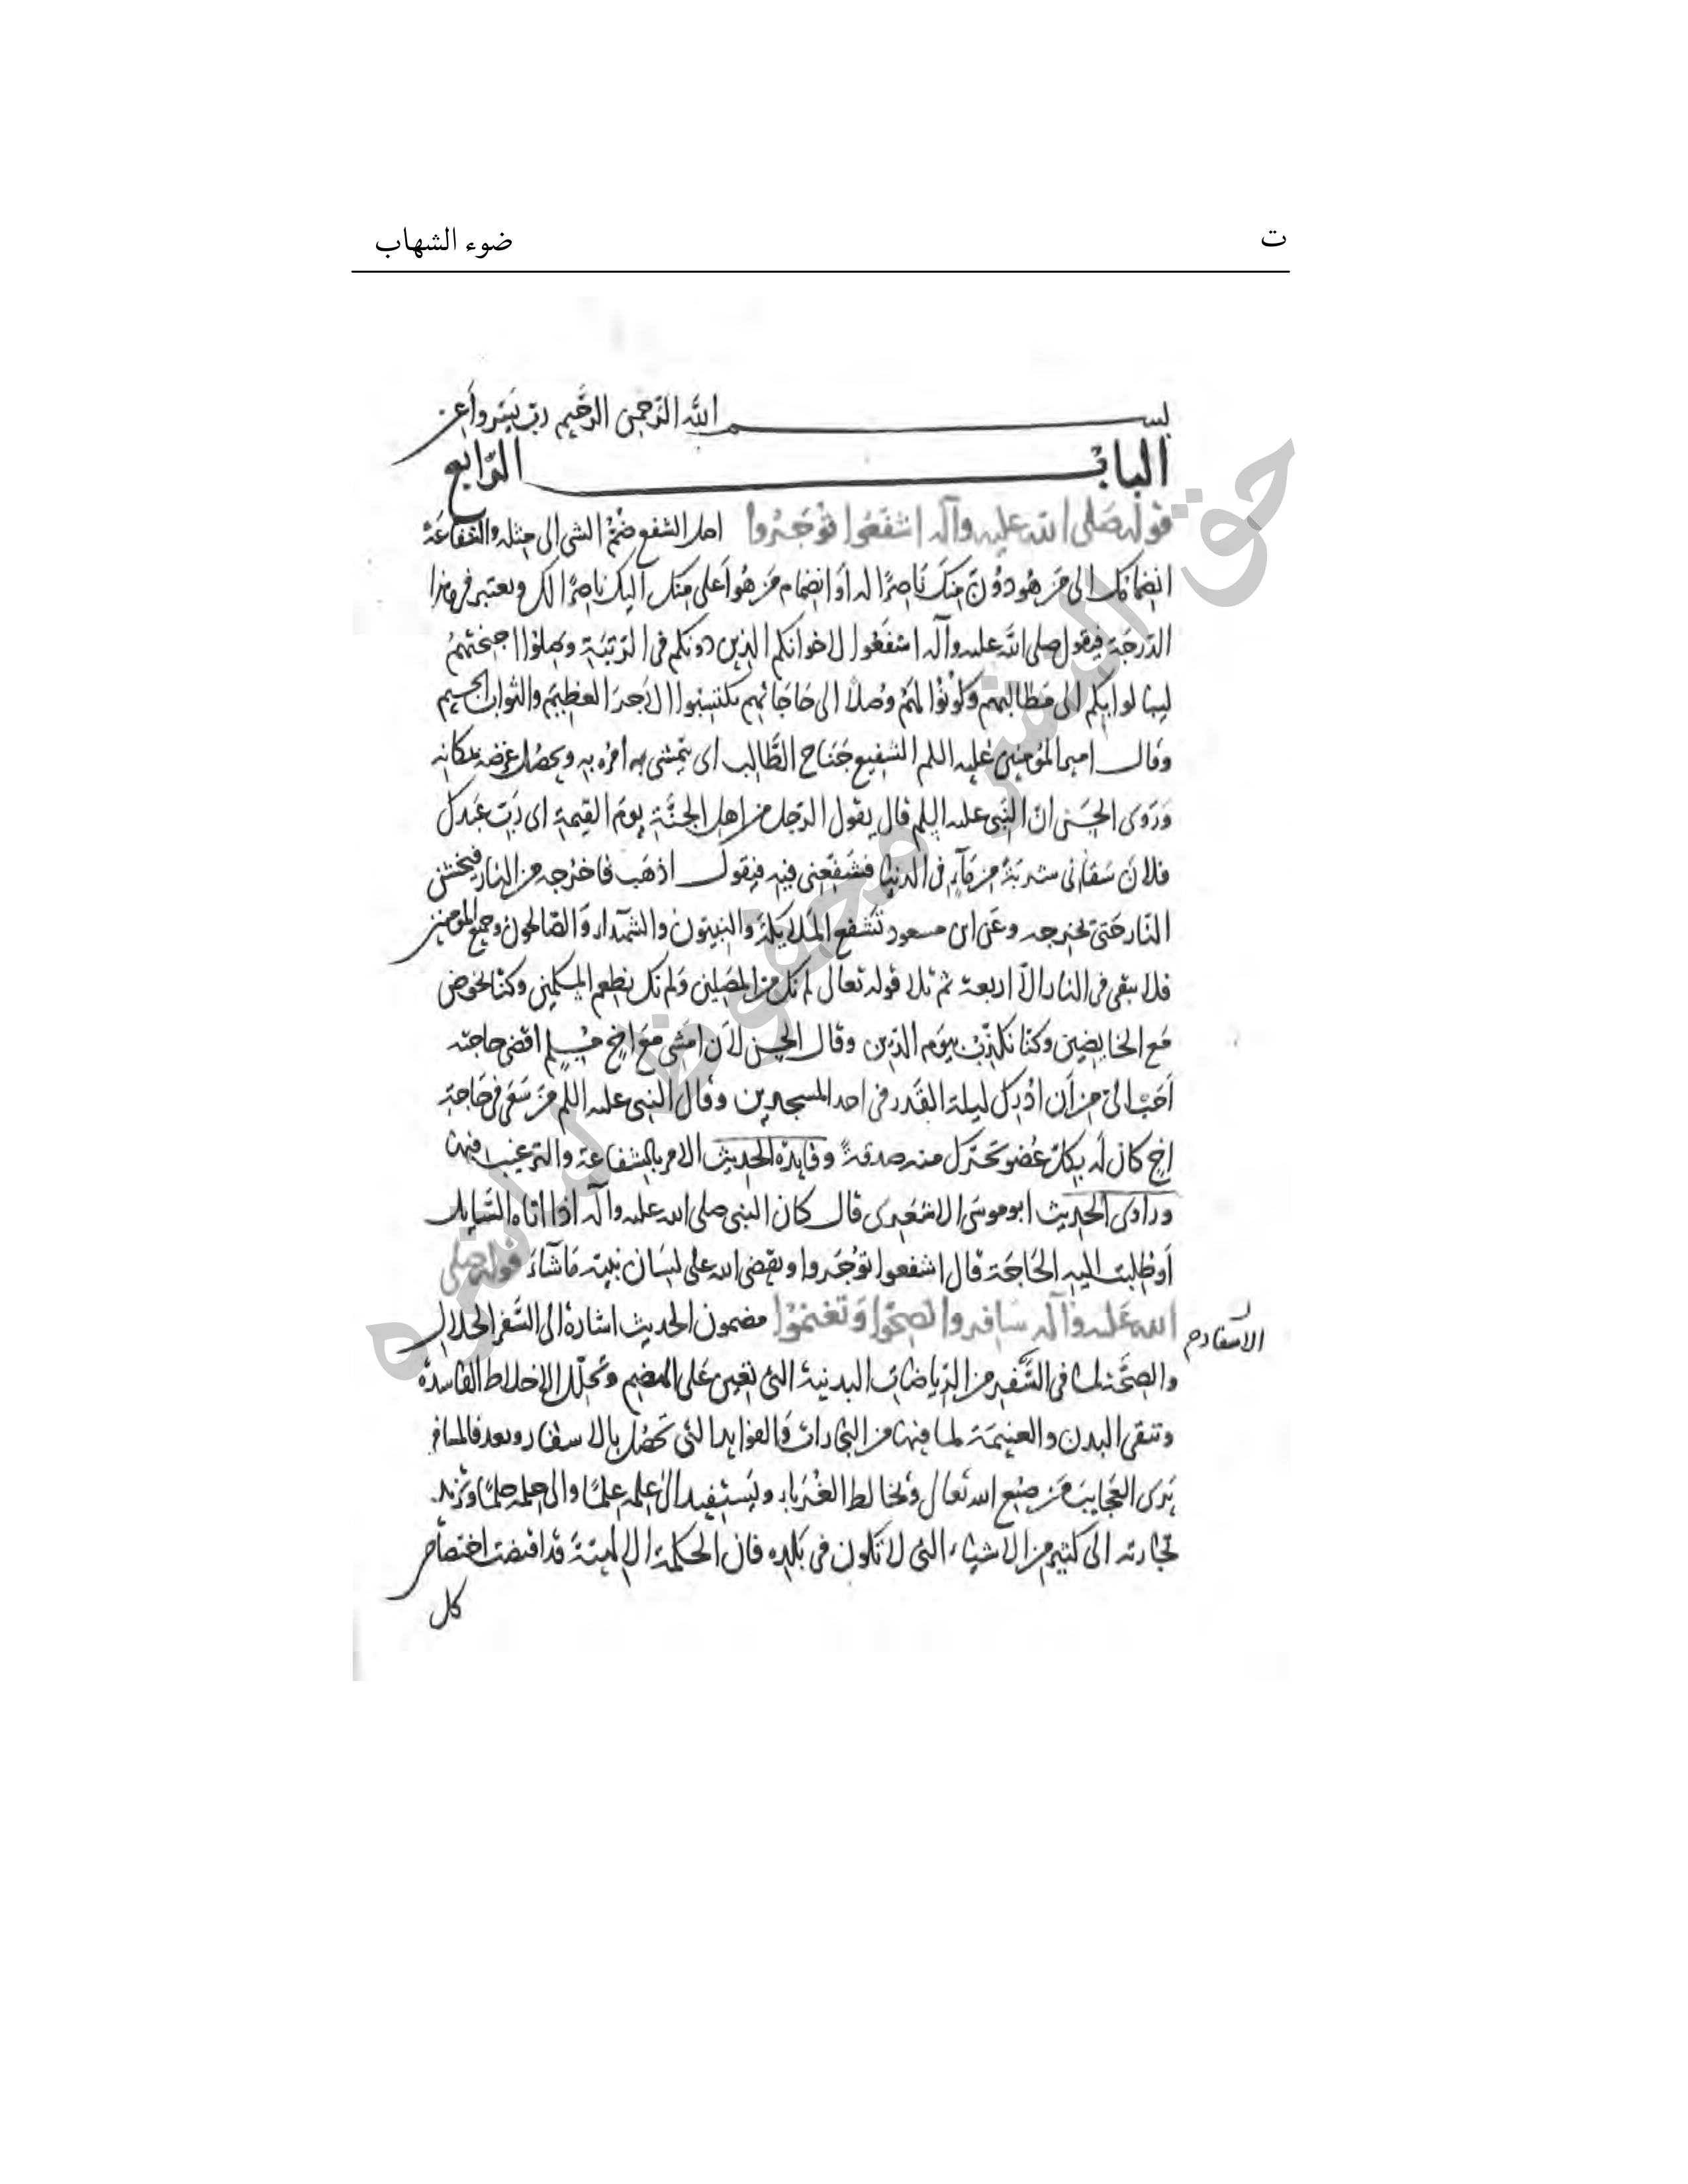 ت
ضوء الشهاب
بسم الله الرحمن الرحيم رب يسر وأعن
الباب الرابع
قوله صلى الله عليه وآله اشفعوا تؤجروا اصل الشفع ضم الشى الى مثله والشفاعة
انضمامك الى من هو دون منك ناصرا له او انضمام من هو اعلى منك اليك ناصرا لك ويعتبر فى هذا
الدرجة فيقول صلى الله عليه وآله اشفعوا لاخوانكم الذين دونكم فى الرتبة وصلوا اجنحتهم
لينالوا بكم الى مطالبهم وكونوا لهم وصلا الى حاجاتهم تكتسبوا الاجر العظيم والثواب الجسيم
وقال امير المؤمنين عليه السلم الشفيع جناح الطالب اى يتمشى به امره به ويحصل غرضه بمكانه
وروى الحسن ان النبى عليه السلم قال يقول الرجل من اهل الجنة يوم القيمة اى رب عبدك
فلان سقانى شربة من ماء فى الدنيا فشفعنى فيه فيقول اذهب فاخرجه من النار فيخش
النار حتى يخرجه وعن ابن مسعود تشفع الملايكة والنبيون والشهداء والصالحون وجميع المؤمنين
فلا يبقى فى النار الا اربعة ثم تلا قوله تعالى لم نك من المصلين ولم نك نطعم المسكين وكنا نخوض
مع الخايضين وكنا نكذب بيوم الدين وقال الحسن لان امشى مع اخ مسلم اقضى حاجته
احب الى من ان ادرك ليلة القدر فى احد المسجدين وقال النبى عليه السلم من سعى فى حاجة
اخ كان له بكل عضو تحرك منه صدقة وفايدة الحديث الامر بالشفاعة والترغيب فيها
وراوى الحديث ابو موسى الاشعرى قال كان النبى صلى الله عليه وآله اذا اتاه السايل
او طلبت اليه الحاجة قال اشفعوا تؤجروا ويقضى الله على لسان نبيه ما شاء قوله صلى
الله عليه وآله سافروا تصحوا وتغنموا مضمون الحديث اشارة الى السفر الحلال
والصحة لما فى السفر من الرياضات البدنية التى تعين على الهضم وتحلل الاخلاط الفاسدة
وتنقى البدن والغنيمة لما فيها من التجارات والفوايد التى تحصل بالاسفار وبعد فالمسافر
يرى العجايب من صنع الله تعالى ويخالط الغرباء ويستفيد الى علمه علما والى حلمه حلما وتزيد
تجارته الى كثير من الاشياء التى لا تكون فى بلده فان الحكمة الالهية قد اقتضت اختصاص
كل
حق النشر محفوظ لناشره